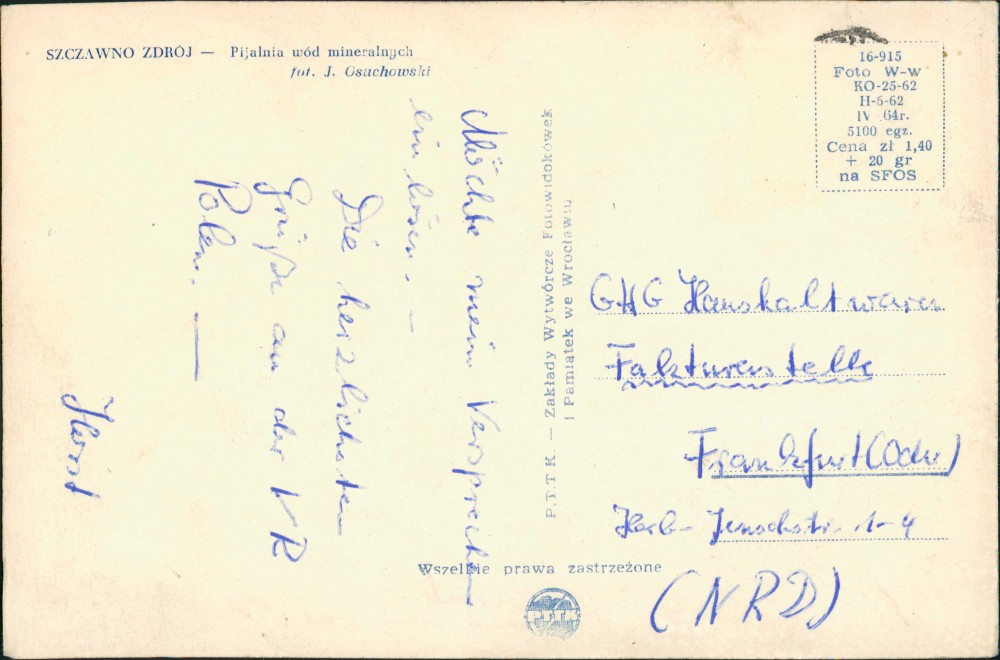 SZCZAWNO ZDRÓJ — Pijalnia wód mineralnych
fot. J. Osuchowski
Möchte mein Versprechen
einlösen. –
Die herzlichsten
Grüße aus der VR
Polen. —
Horst
P.T.T.K. — Zakłady Wytwórcze Fotowidokówek
i Pamiątek we Wrocławiu
16-915
Foto W-w
KO-25-62
H-5-62
IV 64r.
5100 egz.
Cena zł 1,40
+ 20 gr
na SFOS
GHG Haushaltwaren
Fakturenstelle
Frankfurt (Oder)
Herb- Jenschstr. 1-4
(NRD)
Wszelkie prawa zastrzeżone
PTTK